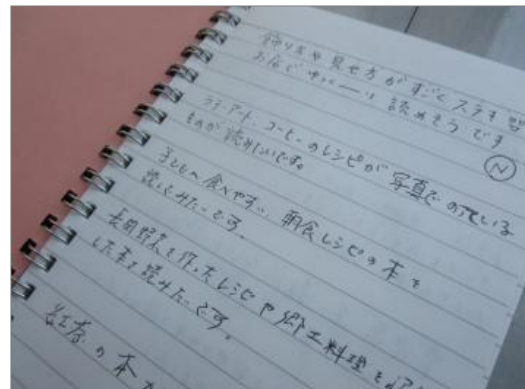 飾り方や見せ方がすごくステキ
お店で 読めそうです
N
ラテ・アート、コーヒーのレシピが写真でのっている
ものが読みたいです。
子どもへ食べやすい、朝食レシピの本を
読んでみたいです。
長岡野菜を作ったレシピや郷土料理を
した本を読みたいです。
紅茶の本